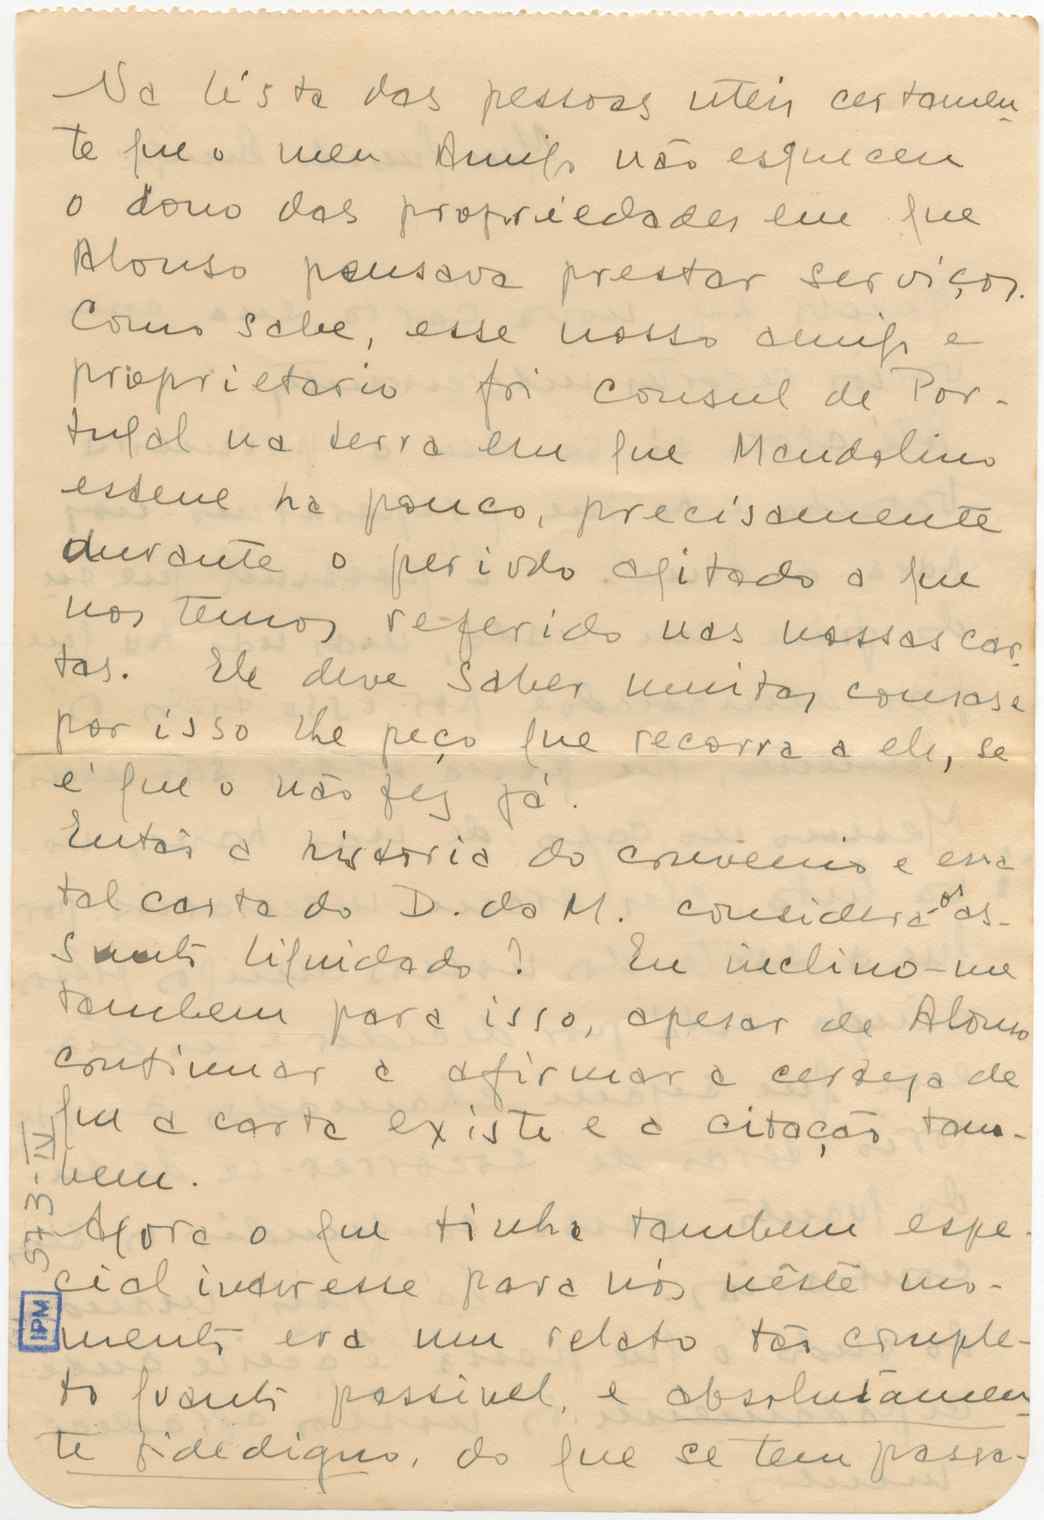 Na lista das pessoas uteis certamen-
te que o meu Amigo não esqueceu
o dono das propriedades em que
Alonso pensava prestar serviços.
Como sabe, esse nosso amigo e
proprietario foi consul de Por-
tugal na terra em que Mandolino
esteve ha pouco, precisamente
durante o periodo agitado a que
nos temos referido nas nossas car-
tas. Ele deve saber muitas cousas e
por isso lhe peço que recorra a ele, se
é que o não fez já.
Então a historia do convenio e essa
tal carta do D. do M. considera-os as-
sunto liquidado? Eu inclino-me
tambem para isso, apesar de Alonso
continuar a afirmar a certeza de
que a carta existe e a citação tam-
bem.
Agora o que tinha tambem espe-
cial interesse para nós nêste mo-
mento era um relato tão comple-
to quanto possivel, e absolutamen-
te fidedigno, do que se tem passa-
573-IV
IPM